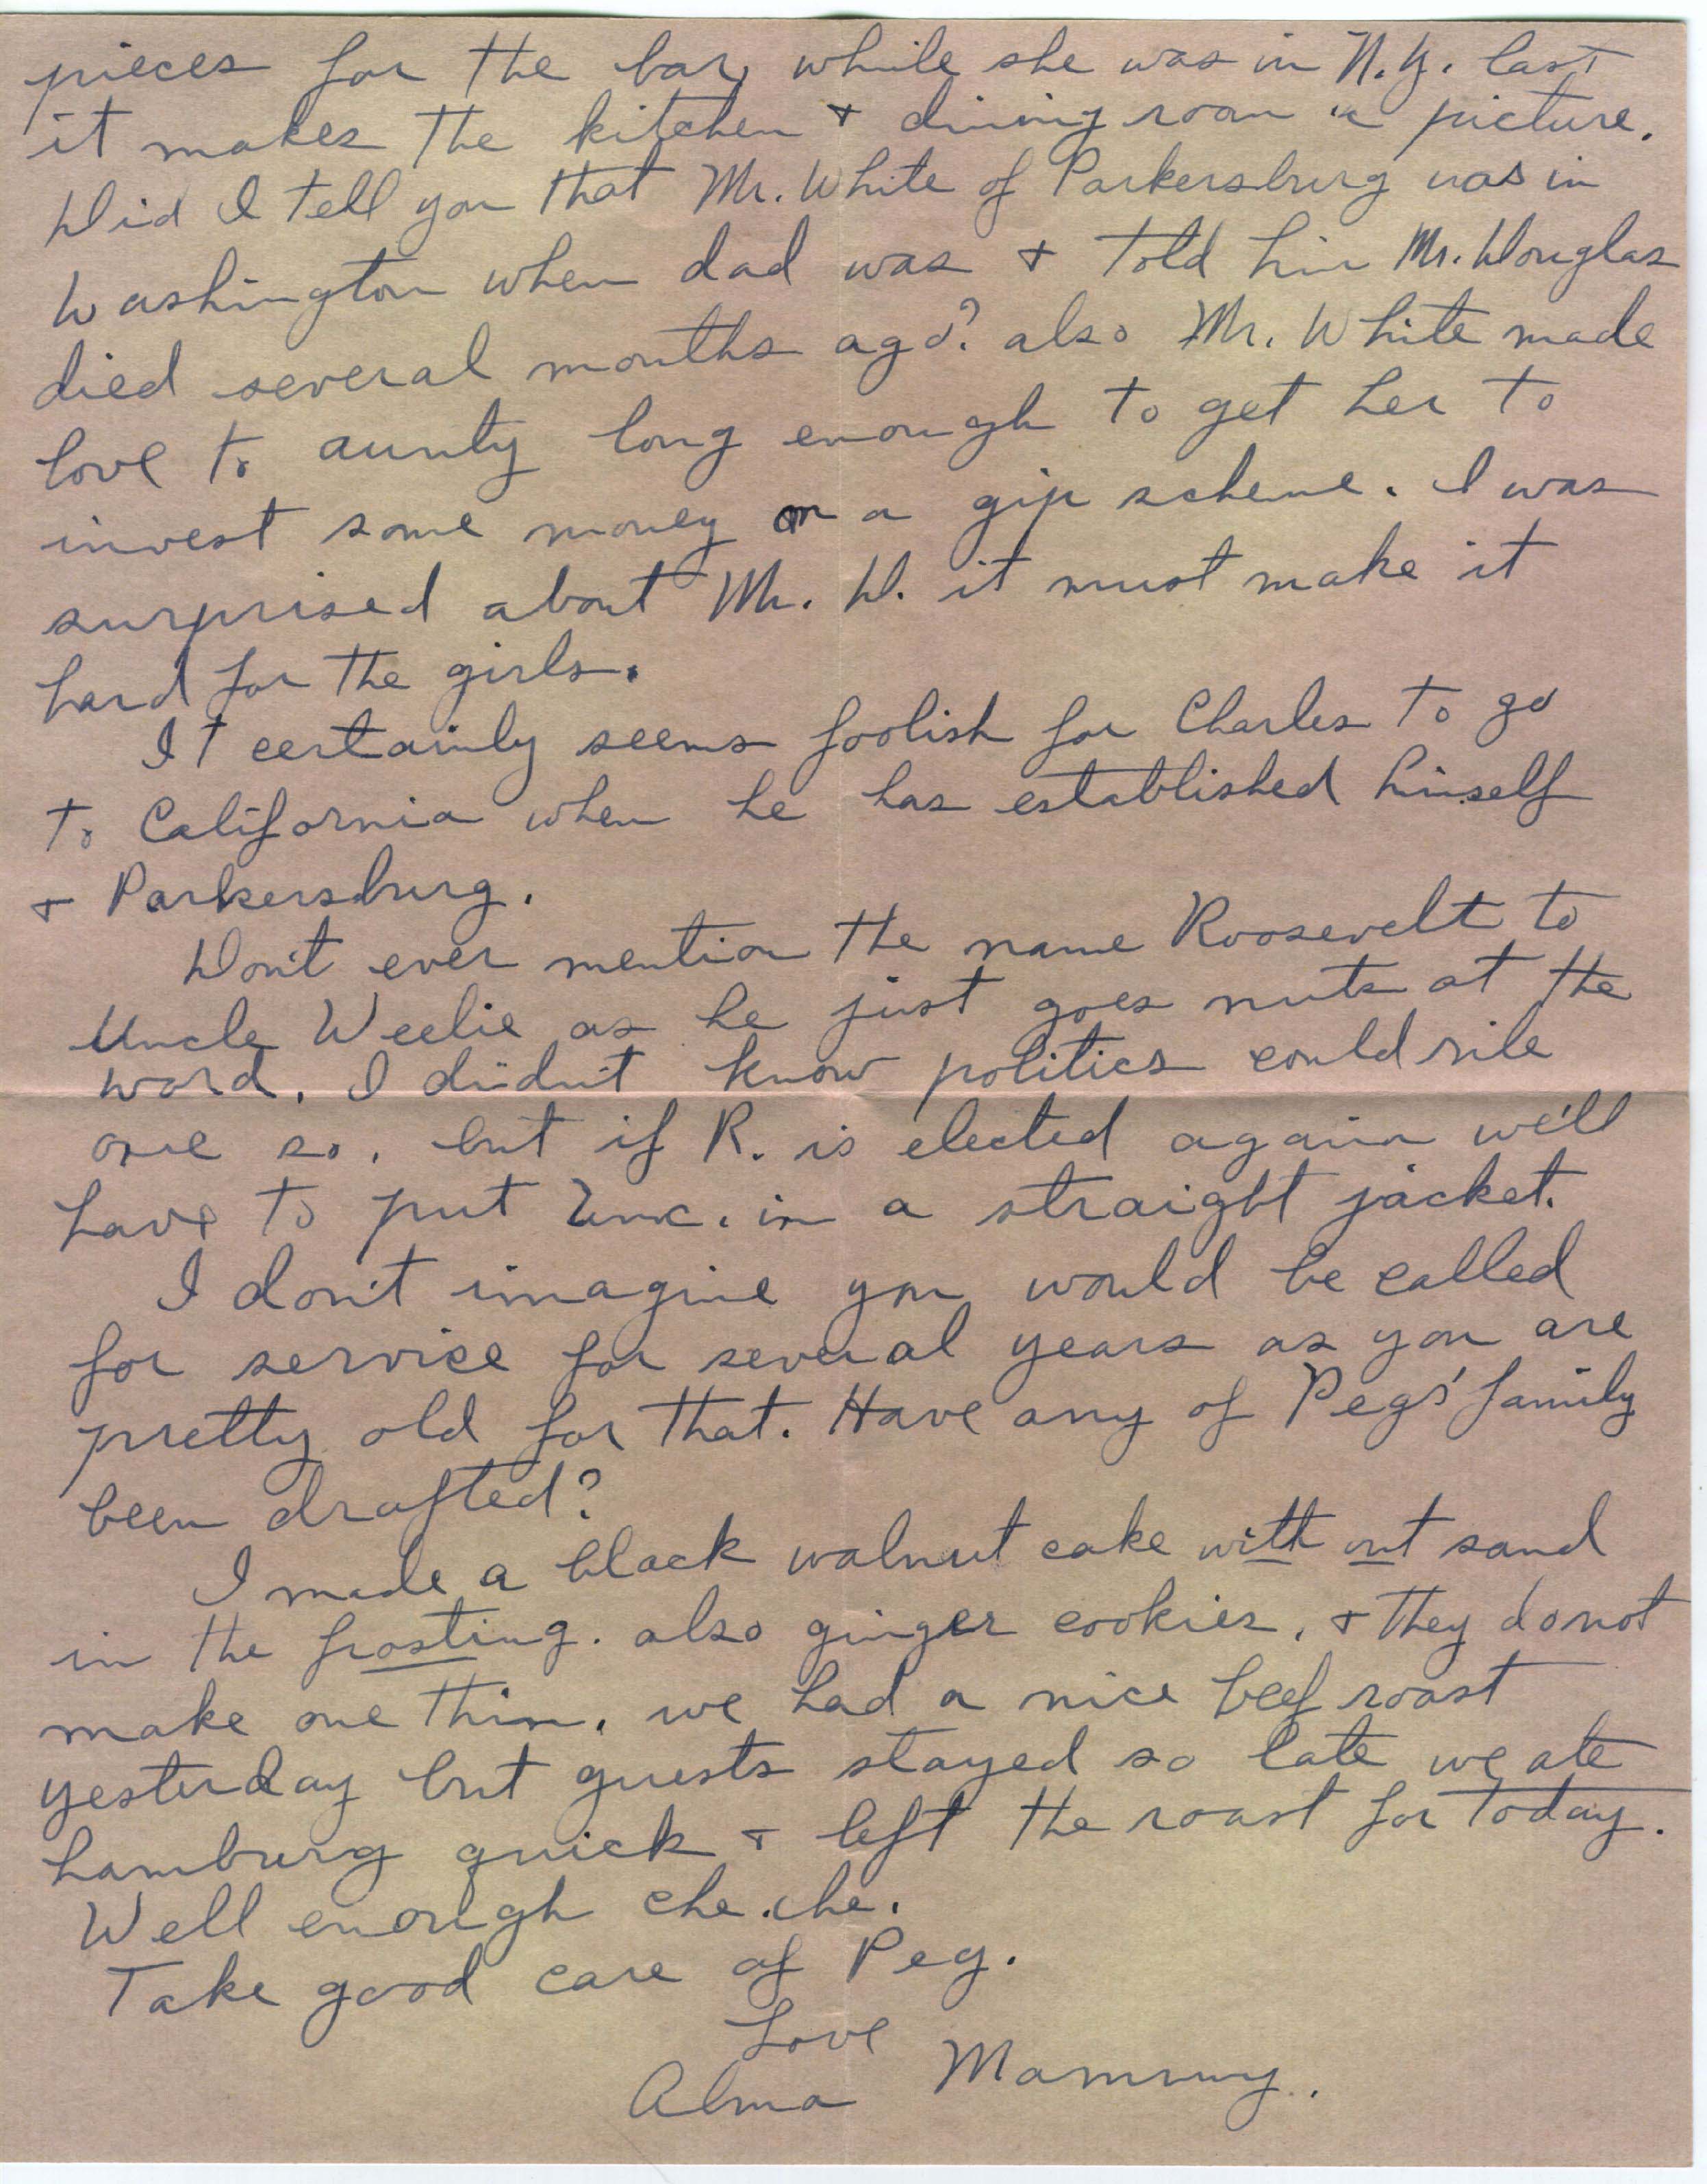 pieces for the bar, while she was in N.Y. last
it makes the kitchen + dining room a picture.
Did I tell you that Mr. White of Parkersburg was in
Washington when dad was + told him Mr. Douglas
died several months ago? also Mr. White made
love to aunty long enough to get her to
invest some money on a gip scheme. I was
surprised about Mr. D. it must make it
hard for the girls.
It certainly seems foolish for Charles to go
to California when he has established himself
+ Parkersburg.
Don't ever mention the name Roosevelt to
Uncle Weelie as he just goes nuts at the
word. I didn't know politics could rile
one so. but if R. is elected again we'll
have to put Unc. in a straight jacket.
I don't imagine you would be called
for service for several years as you are
pretty old for that. Have any of Pegs' family
been drafted?
I made a black walnut cake with out sand
in the frosting. also ginger cookies, + they do not
make one thin. we had a nice beef roast
yesterday but guests stayed so late we ate
hamburg quick + left the roast for today.
Well enough che.che.
Take good care of Peg.
Love
Alma Mammy.